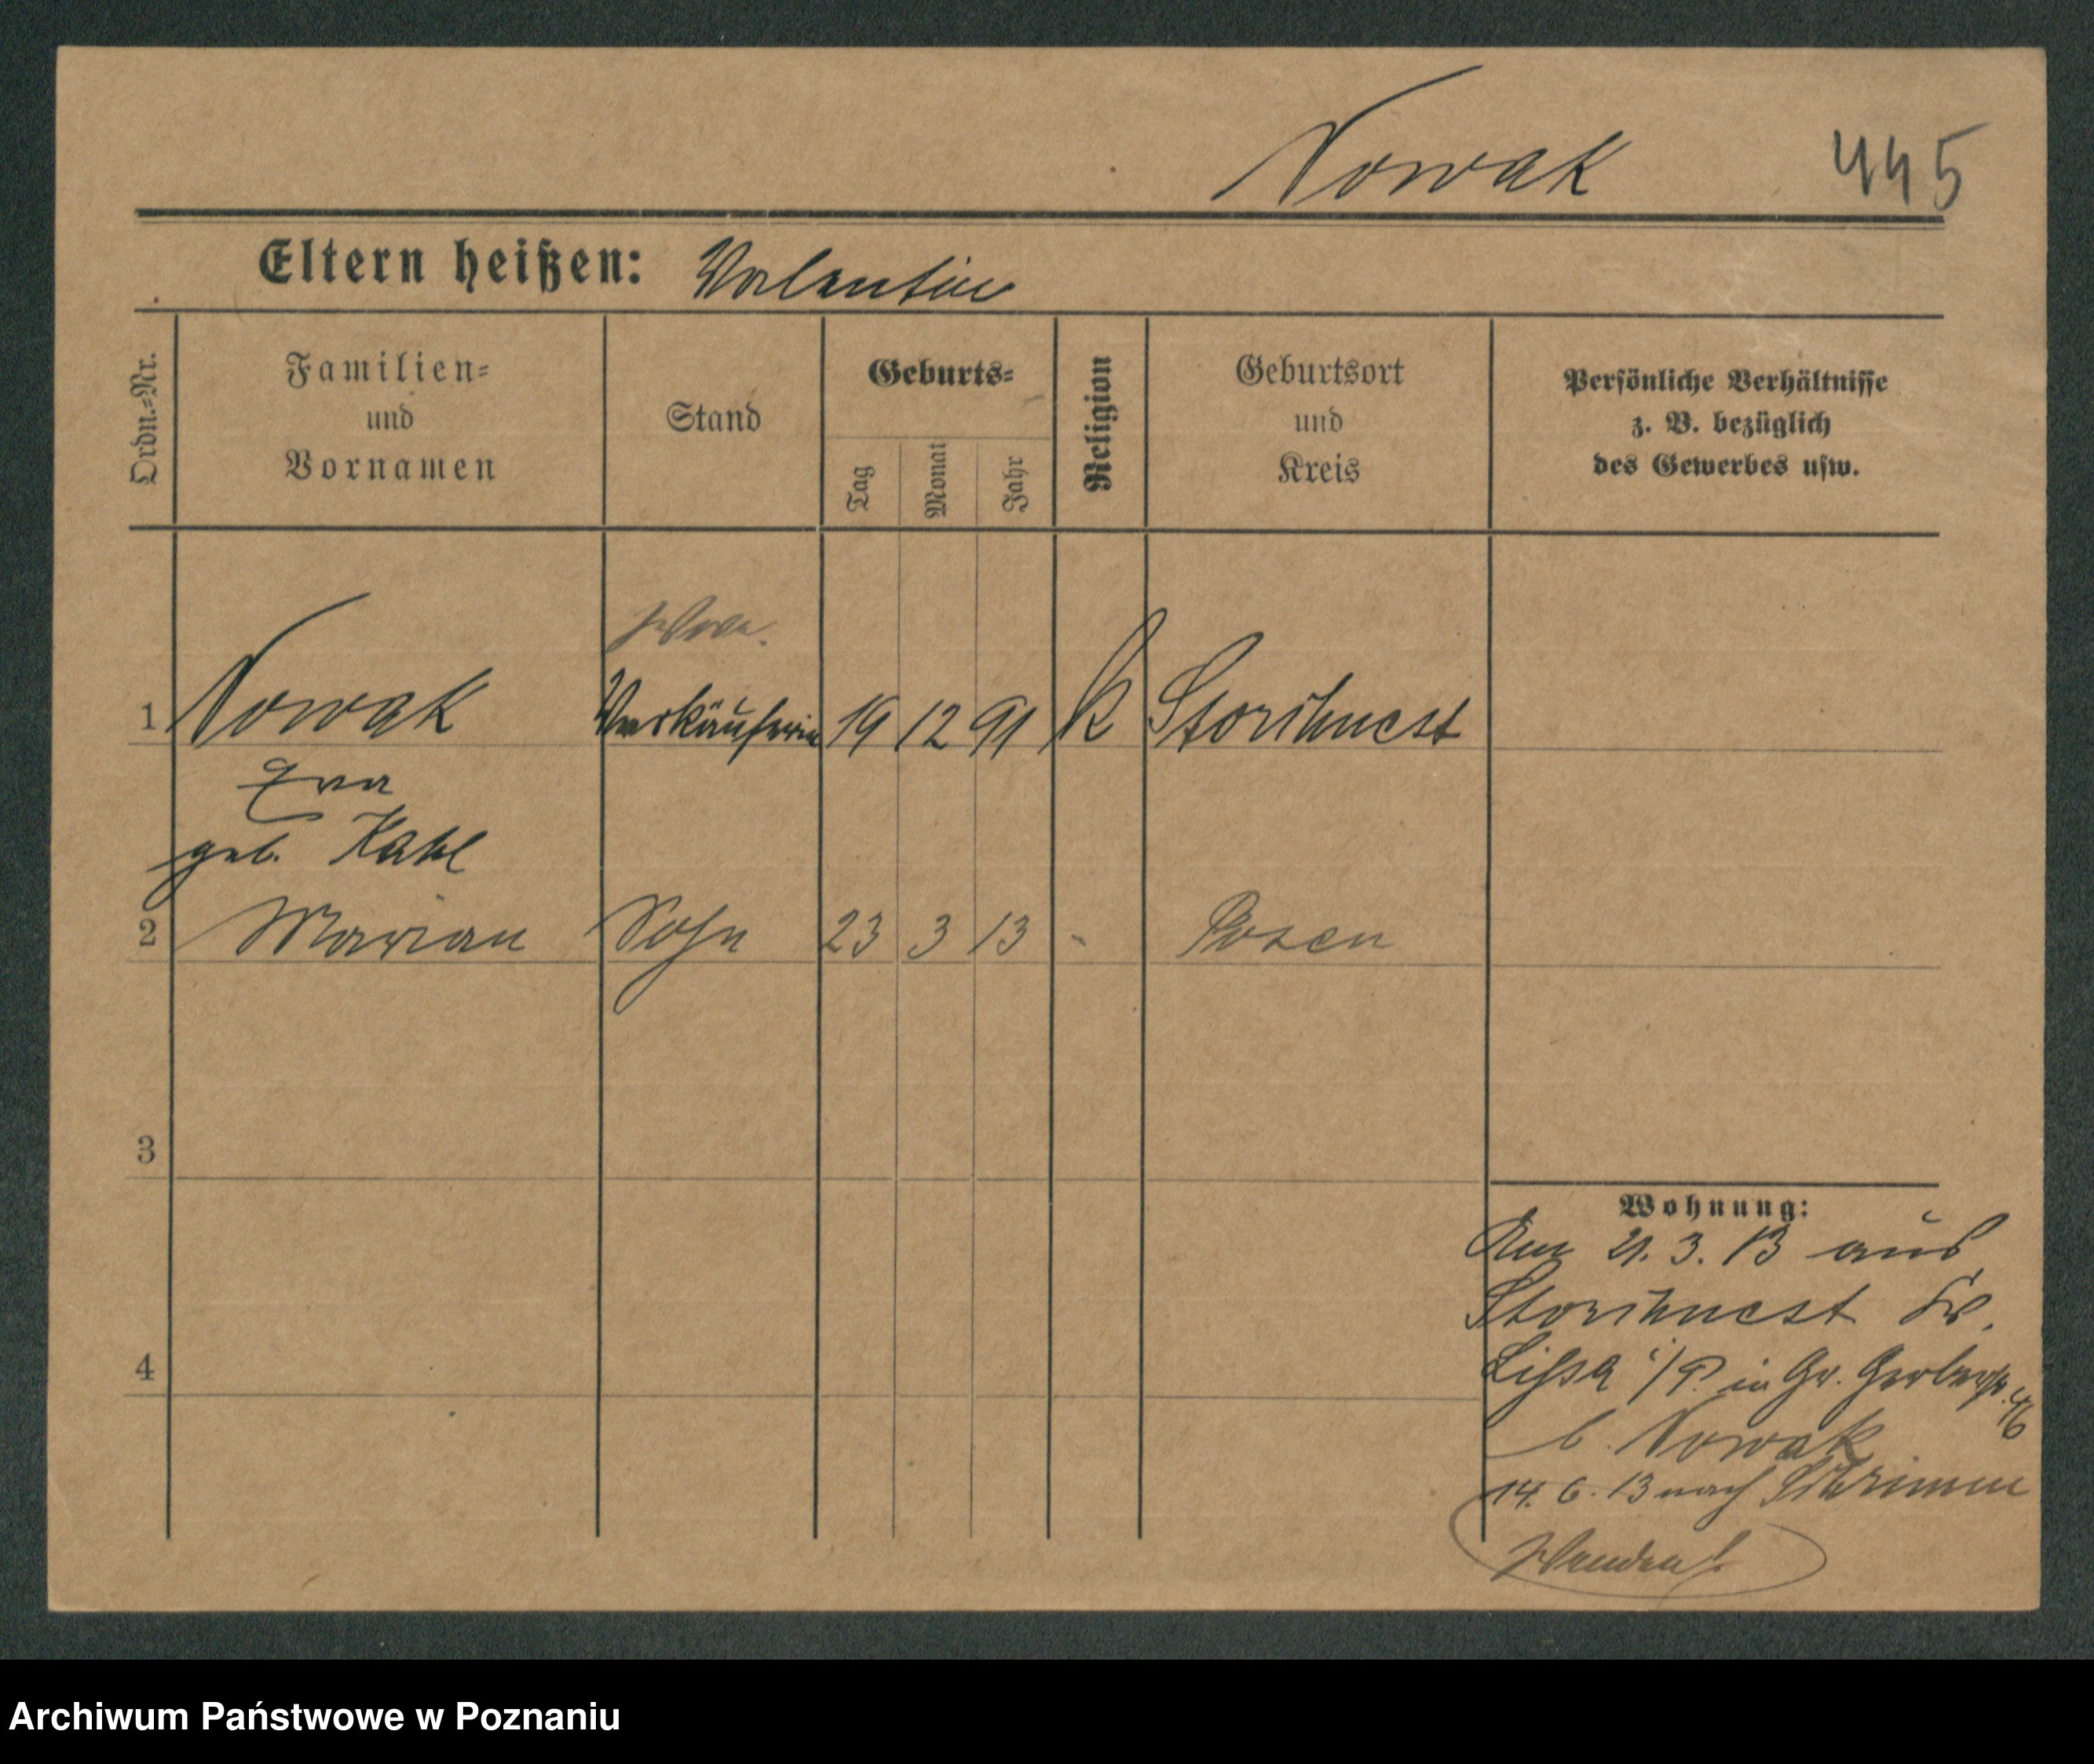 Nowak 445
Eltern heißen: Valentin
Ordn.-Nr.
Familien=
und
Vornamen
Stand
Geburts=
Tag
Monat
Jahr
Religion
Geburtsort
und
Kreis
Persönliche Verhältnisse
z. B. bezüglich
des Gewerbes usw.
1 Nowak Verkäuferin 19 12 91 K Storchnest
Eva
geb. Kahl
2 Marian Sohn 23 3 13 - Posen
3
4
Wohnung:
Am 21. 3. 13 aus
Storchnest Kr.
Lissa i/P. in Gr. Gerberstr. 46
b. Nowak
14. 6. 13 nach Schrimm
Wenden!
Archiwum Państwowe w Poznaniu